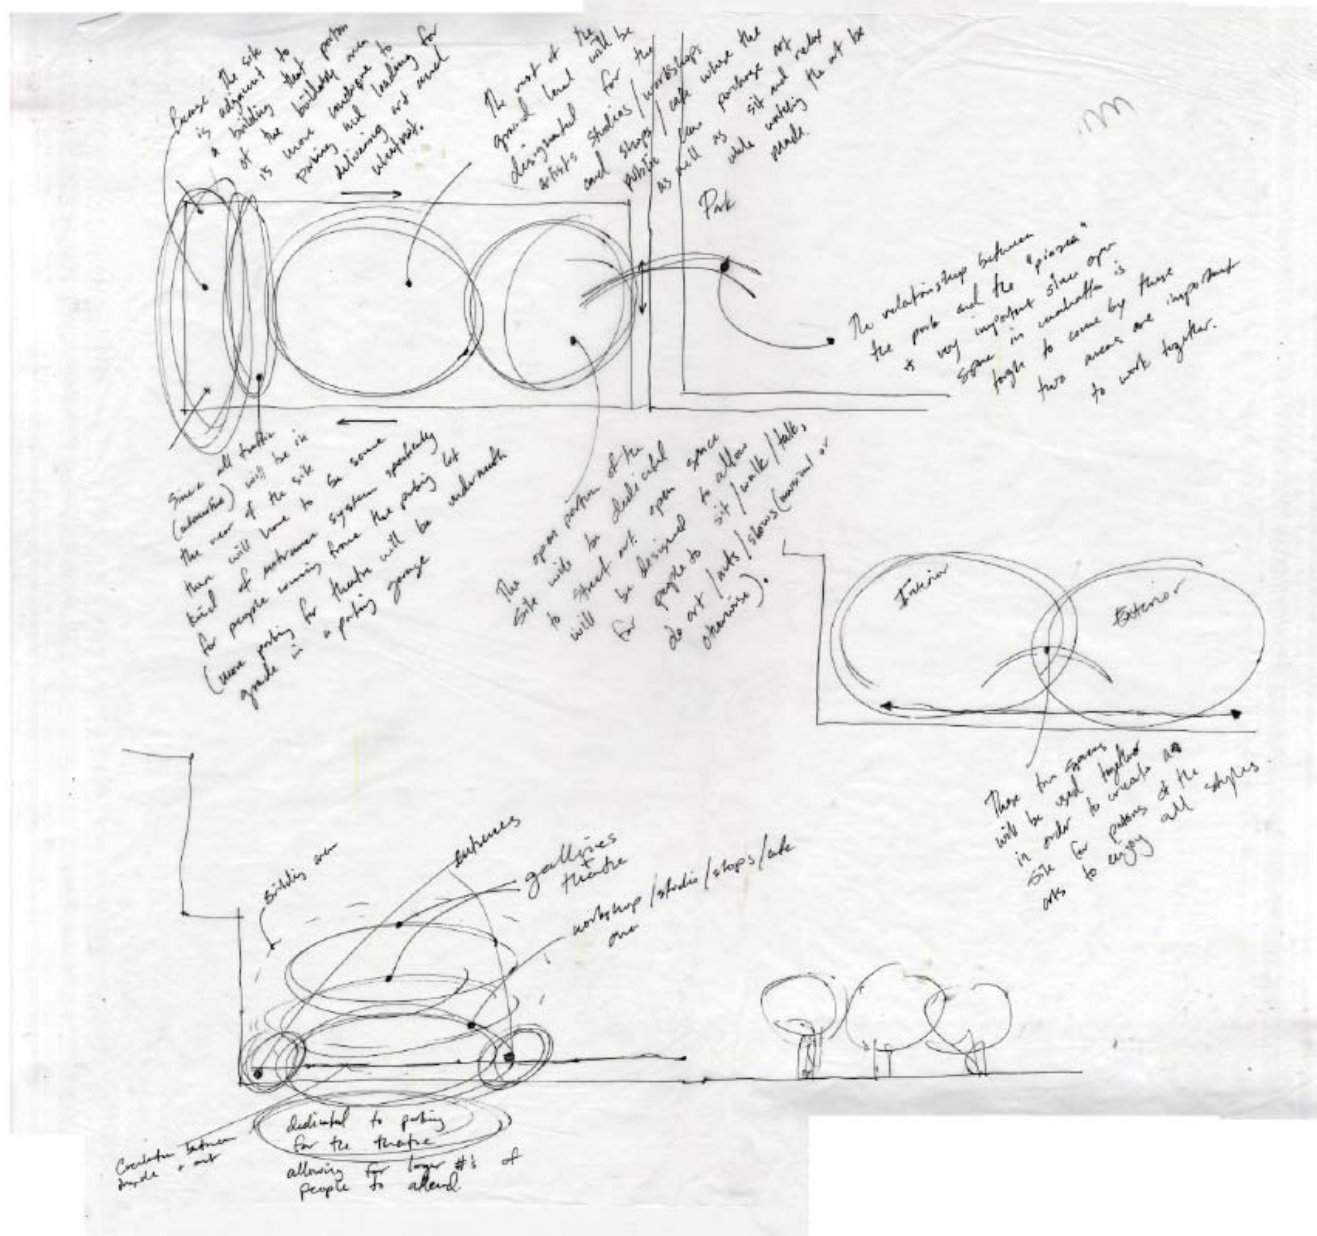 Because the site
is adjacent to
a building that portion
of the buildable area
is more
parking and loading for
delivering art and
whatnot.
The rest of the
ground level will be
designated for the
artists studios/workshops
and shops/cafe where the
public can purchase art
as well as sit and relax
while watching the art be
made.
Park
The relationship between
the park and the "piazza"
is very important since open
space in manhattan is
tough to come by these
two areas are important
to work together.
Since all traffic
(automotive) will be in
the rear of the site
there will have to be some
kind of entrance system specifically
for people coming from the parking lot
(more parking for theatre will be underneath
grade in a parking garage
The open portion of the
site will be dedicated
to street art. open space
will be designed to allow
for people to sit/walk/talk,
do art/acts/shows (musical or
otherwise).
Interior
Exterior
These two spaces
will be used together
in order to create a
site for patrons of the
arts to enjoy all
building area
entrances
galleries
+
theatre
workshop/studio/shops/cafe
area
Circulation between
inside + out
dedicated to parking
for the theatre
allowing for larger #'s of
people to attend